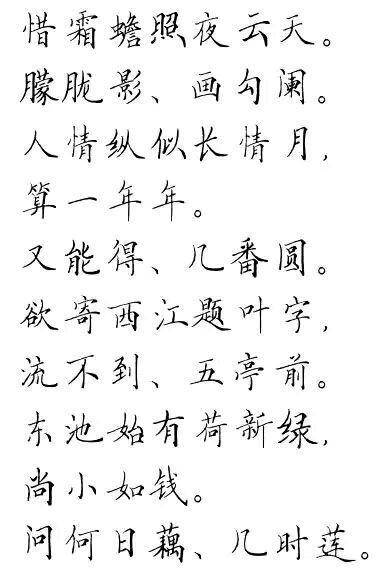 惜霜蟾照夜云天。
朦胧影、画勾阑。
人情纵似长情月，
算一年年。
又能得、几番圆。
欲寄西江题叶字，
流不到、五亭前。
东池始有荷新绿，
尚小如钱。
问何日藕、几时莲。